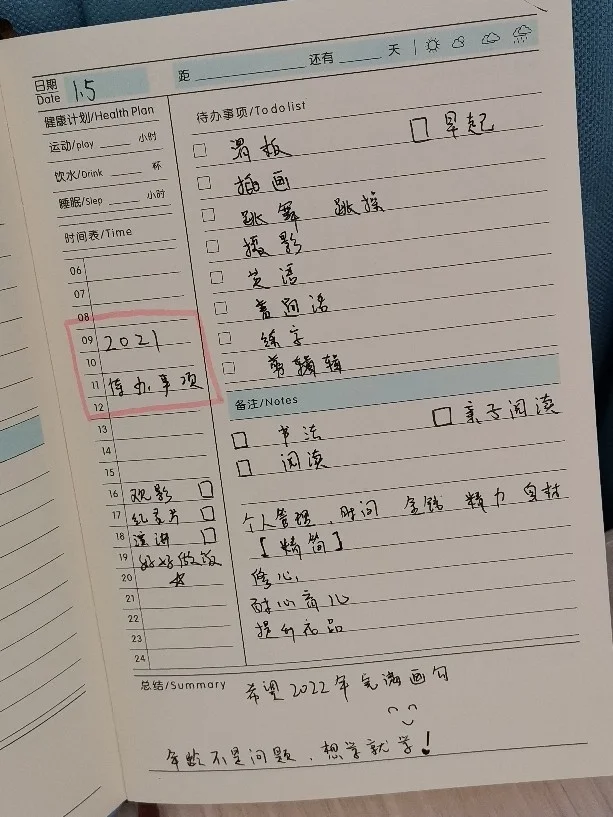 日期
Date 1.5
距 还有 天
健康计划/Health Plan
运动/play 小时
饮水/Drink 杯
睡眠/Slep 小时
时间表/Time
06
07
08
09 2021
10
11 待办事项
12
13
14
15
16 观影
17 纪录片
18 演讲
19 好好做饭
20
21
22
23
24
待办事项/To do list
滑板 早起
插画
跳舞 跳操
摄影
英语
普通话
练字
剪辑
备注/Notes
书法 亲子阅读
阅读
个人管理、时间 金钱 精力 身材
【精简】
修心
耐心育儿
提升衣品
总结/Summary 希望2022年全满画句
年龄不是问题、想学就学!